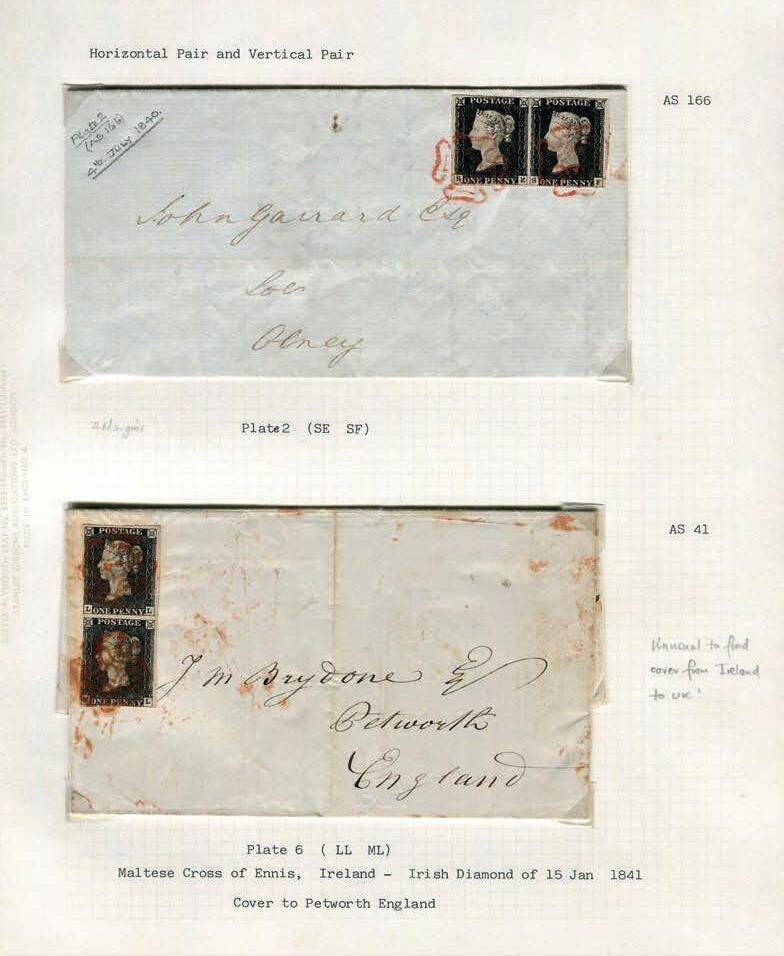 Horizontal Pair and Vertical Pair
AS 166
Plate 2
(AS 166)
4th JULY 1840.
POSTAGE POSTAGE
S ONE PENNY E S ONE PENNY F
John Garrard Esq.
Olney
4 Margins
Plate2 (SE SF)
AS 41
POSTAGE
L ONE PENNY L
POSTAGE
ONE PENNY L
J M Brydone Esq
Petworth
England
Unusual to find
cover from Ireland
to UK!
Plate 6 ( LL ML)
Maltese Cross of Ennis, Ireland – Irish Diamond of 15 Jan 1841
Cover to Petworth England